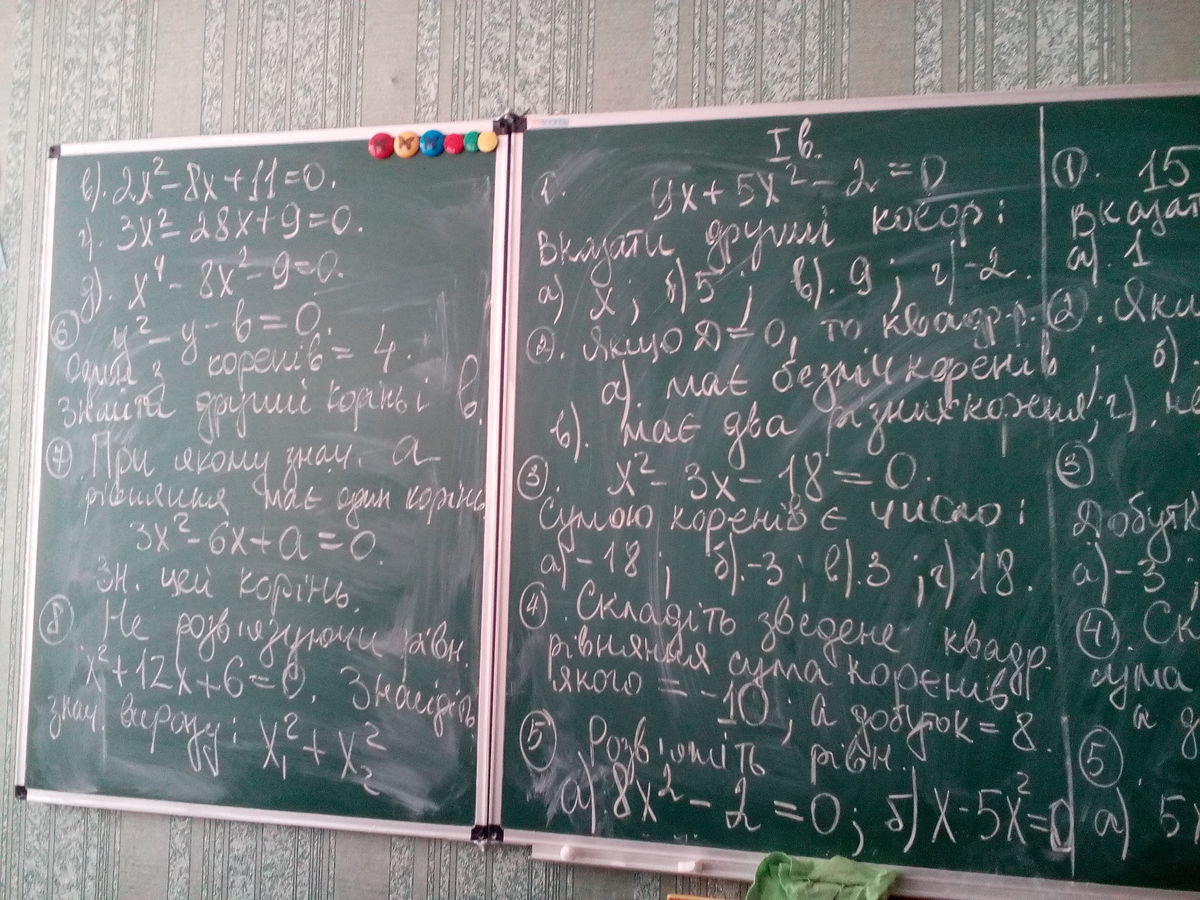 в). 2x² - 8x + 11 = 0.
г). 3x² - 28x + 9 = 0.
д). x⁴ - 8x² - 9 = 0.
⑥ y² - y - в = 0.
Один з коренів = 4.
Знайти другий корінь і в.
⑦ При якому знач. a
рівняння має один корінь
3x² - 6x + a = 0.
Зн. цей корінь.
⑧ Не розв'язуючи рівн.
x² + 12x + 6 = 0. Знайдіть
знач. виразу: x₁² + x₂²
I в.
①. 9x + 5x² - 2 = 0
Вказати другий коеф:
а) x; б) 5; в). 9; г) -2.
②. Якщо Д = 0, то квадр. р.
а) має безліч коренів;
в). має два різних кореня; г).
③. x² - 3x - 18 = 0.
Сумою коренів є число:
а) -18; б). -3; в). 3; г) 18.
④. Складіть зведене квадр.
рівняння сума коренів
якого = -10; а добуток = 8.
⑤ Розв'яжіть рівн.
а) 8x² - 2 = 0; б) x - 5x² = 0
①. 15
Вказат
а). 1
②. Якщ
б)
г). не
③
Добутк
а) -3
④. Ск
сума
а д
⑤.
а) 5x